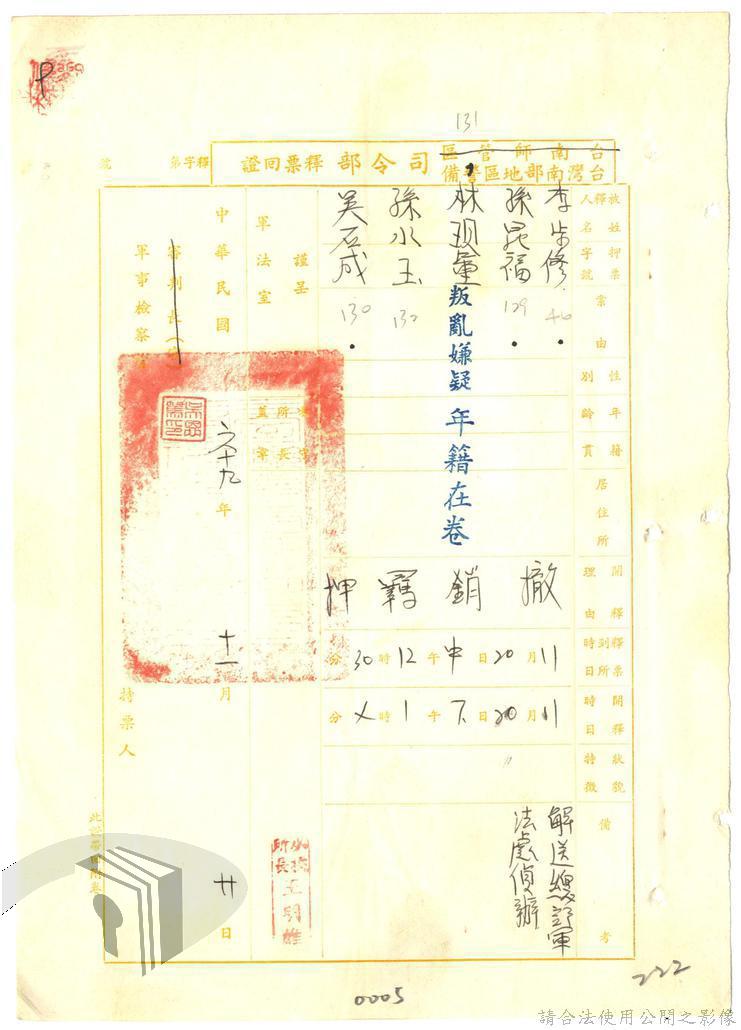 131
台南師管區
台灣南部地區警備
司令部釋票回證
釋字第 號
被釋人
姓名
押票字號
案由
性別
年齡
籍貫
居住所
開釋理由
釋票到所時日
開釋時日
狀貌特徵
備考
李步修 46
孫昆福 129
林現量
孫水玉 132
吳石成 130
叛亂嫌疑 年籍在卷
撤銷羈押
11月20日中午12時30分
11月20日下午1時 分
〃
解送總部軍
法處偵辦
謹呈
軍法室
看守所所長 蓋章
中華民國六十九年十一月廿日
審判長
軍事檢察官
持票人
0005
222
請合法使用公開之影像